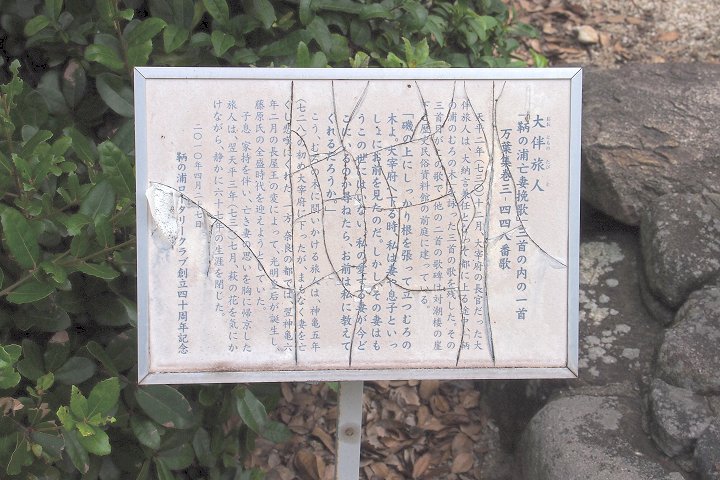 大伴旅人
おお とものたび と
「鞆の浦亡妻挽歌」三首の内の一首
万葉集巻三・四四八番歌
天平二年(七三〇)十二月、大宰府の長官だった大
伴旅人は、大納言兼任となって都に上る途中、鞆
の浦のむろの木を詠った三首の歌を残した。その
三首目がこの歌で他の二首の歌碑は対潮楼の崖
下と歴史民俗資料館の前庭に建ってる。
「磯の上にしっかり根を張って立つむろの
木よ、大宰府へ下る時、私は妻や息子といっ
しょにお前を見たのだ。しかし、その妻はも
うこの世にはいない。私の愛する妻が今ど
こにいるのか尋ねたら、お前は私に教えて
くれるだろうか」
こう、むろの木に問いかける旅人は、神亀五年
(七二八)の初め大宰府に下ったが、まもなく妻を亡
くし悲嘆にくれた。一方、奈良の都では、翌神亀六
年二月の長屋王の変によって、光明皇后が誕生し、
藤原氏の全盛時代を迎えようとしていた。
子息、家持を伴い、亡き妻の思いを胸に帰京した
旅人は、翌天平三年(七三一)七月、萩の花を気にか
けながら、静かに六十七年の生涯を閉じた。
二〇一〇年四月二十七日
鞆の浦ロータリークラブ創立四十周年記念